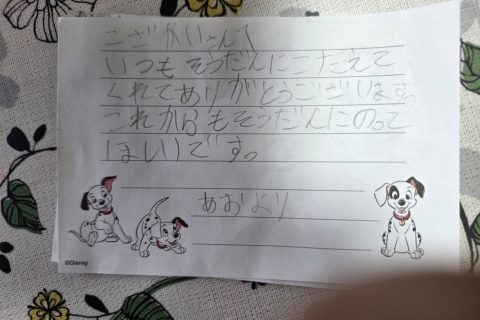 こざかいさんへ
いつもそうだんにこたえて
くれてありがとうございます。
これからもそうだんにのって
ほしいです。
あおより
©Disney